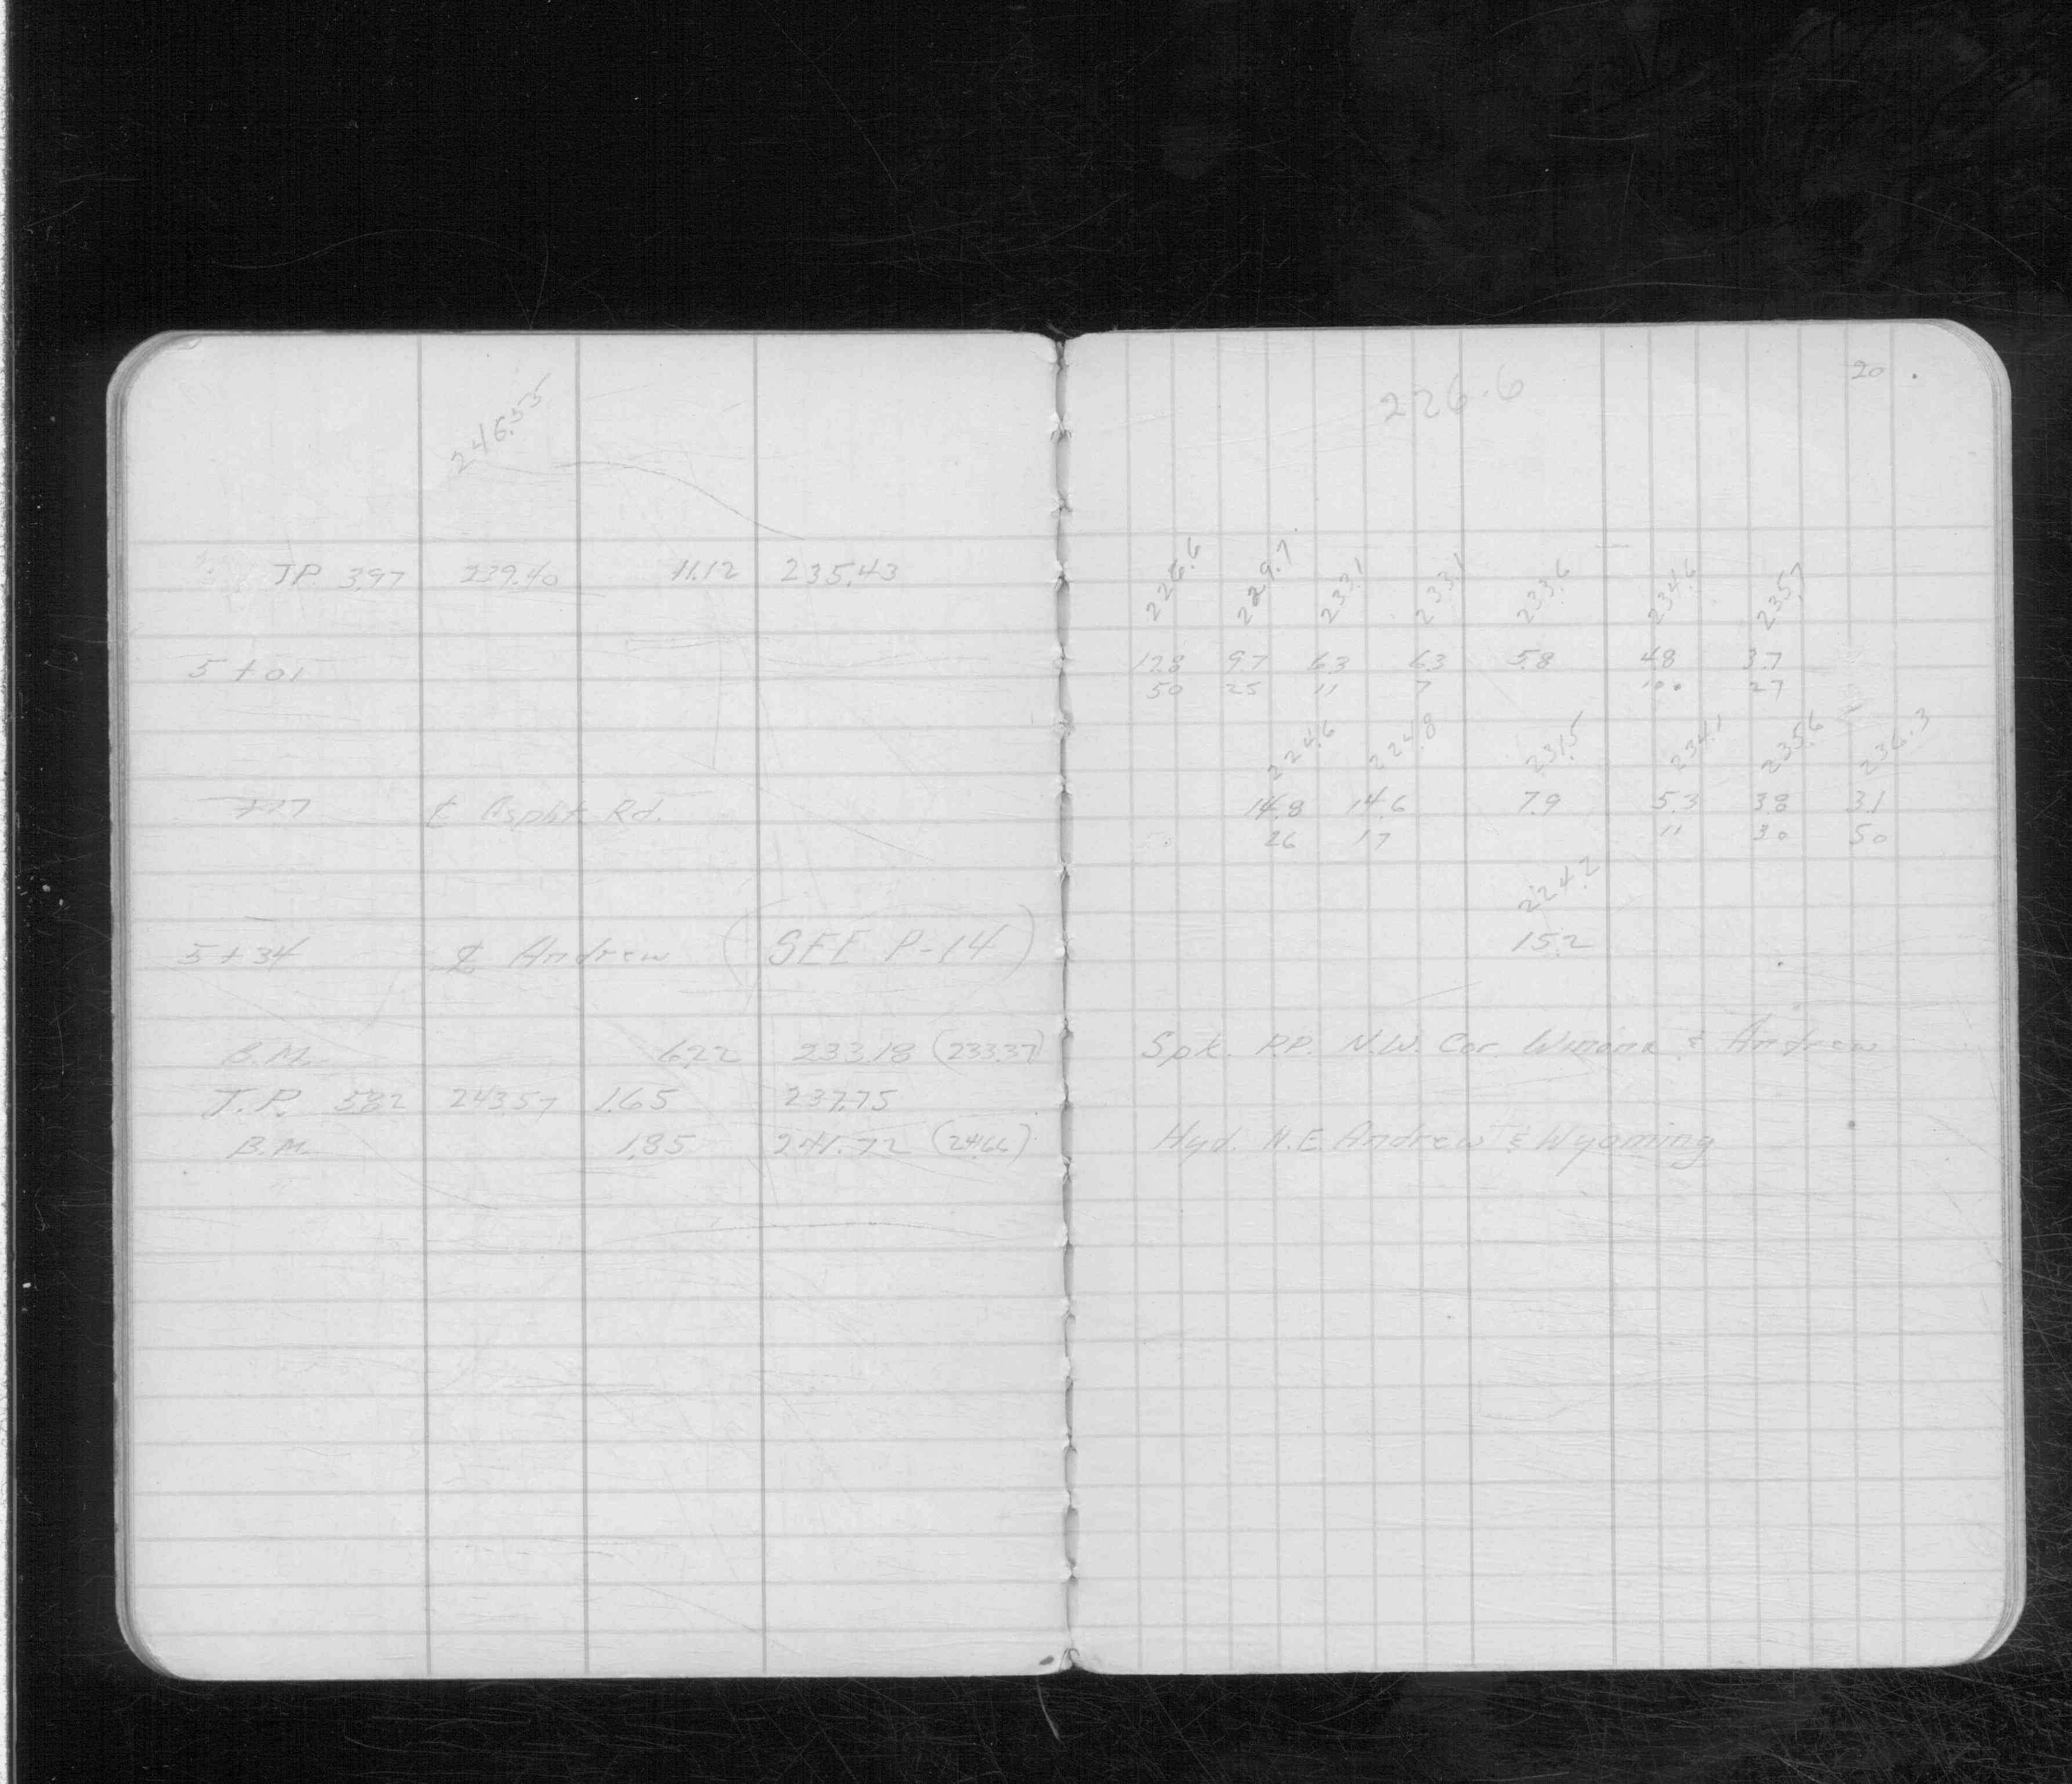 246.55
T.P. 3.97 239.40 11.12 235.43
5+01
+17 ℄ Asphlt Rd.
5+34 ℄ Andrew (SEE P-14)
B.M. 6.22 233.18 (233.37)
T.P. 5.82 243.57 1.65 237.75
B.M. 1.85 241.72 (241.66)
20
226.6
226.6 229.7 233.1 233.1 233.6 234.6 235.7
12.8 9.7 6.3 6.3 5.8 4.8 3.7
50 25 11 7 10 27
224.6 224.8 231.5 234.1 235.6 236.3
14.8 14.6 7.9 5.3 3.8 3.1
26 17 11 30 50
224.2
15.2
Spk. P.P. N.W. Cor. Winona & Andrew
Hyd. N.E. Andrew & Wyoming